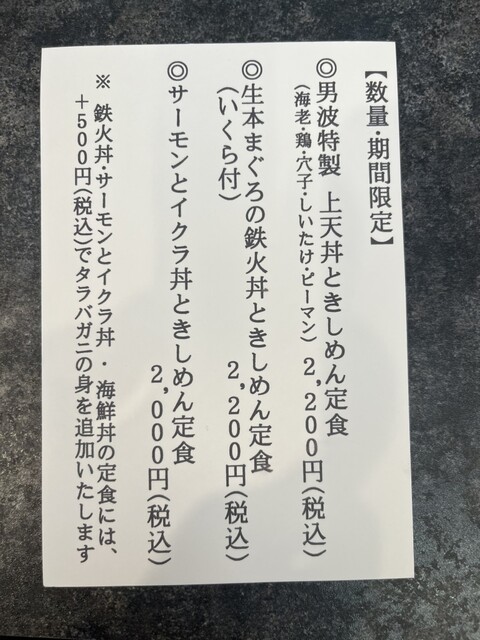 【数量・期間限定】
◎男波特製 上天丼ときしめん定食
(海老・鶏・穴子・しいたけ・ピーマン) 2,200円(税込)
◎生本まぐろの鉄火丼ときしめん定食
(いくら付) 2,200円(税込)
◎サーモンとイクラ丼ときしめん定食
2,000円(税込)
※ 鉄火丼・サーモンとイクラ丼・海鮮丼の定食には、
+500円(税込)でタラバガニの身を追加いたします